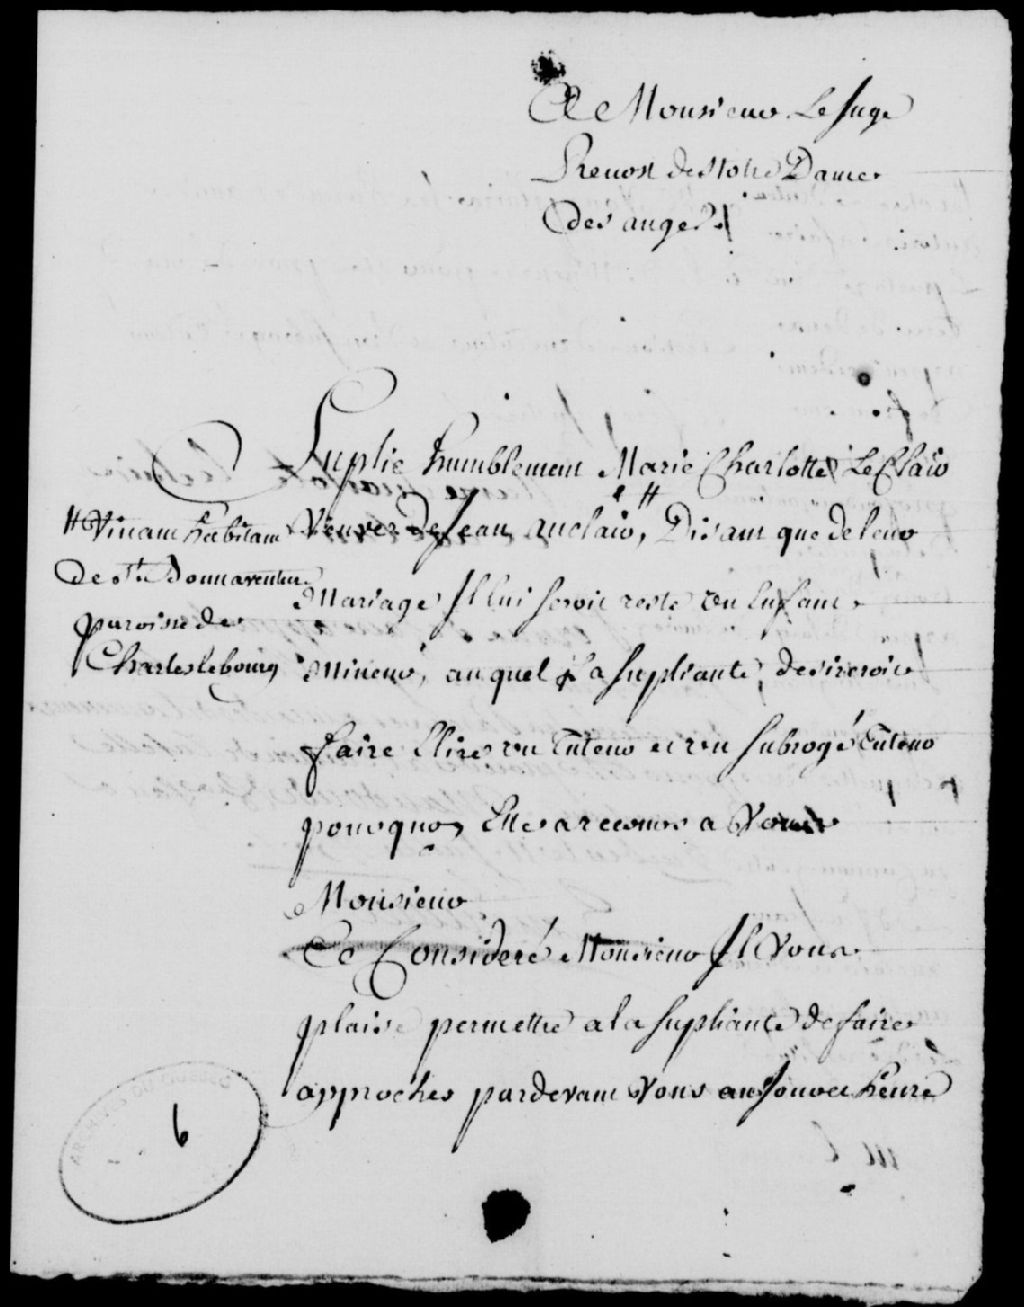 A Monsieur Le Juge
Prevost de Notre Dame
des anges
Suplie humblement Marie Charlotte Le Clair
Veuve de Jean auclair, # Disant que de leur
mariage Il lui seroit resté un Enfant
mineur, auquel la supliante, desireroit
faire Elire un Tuteur et un subrogé Tuteur
pourquoy Elle a recours a Vous
Monsieur
Ce Consideré Monsieur Il Vous
plaise permettre a la supliante de faire
approcher pardevant Vous au Jour et heure
# Vivant habitant
de St Bonnaventure
paroisse de
Charlesbourg
ARCHIVES DU QUEBEC
6